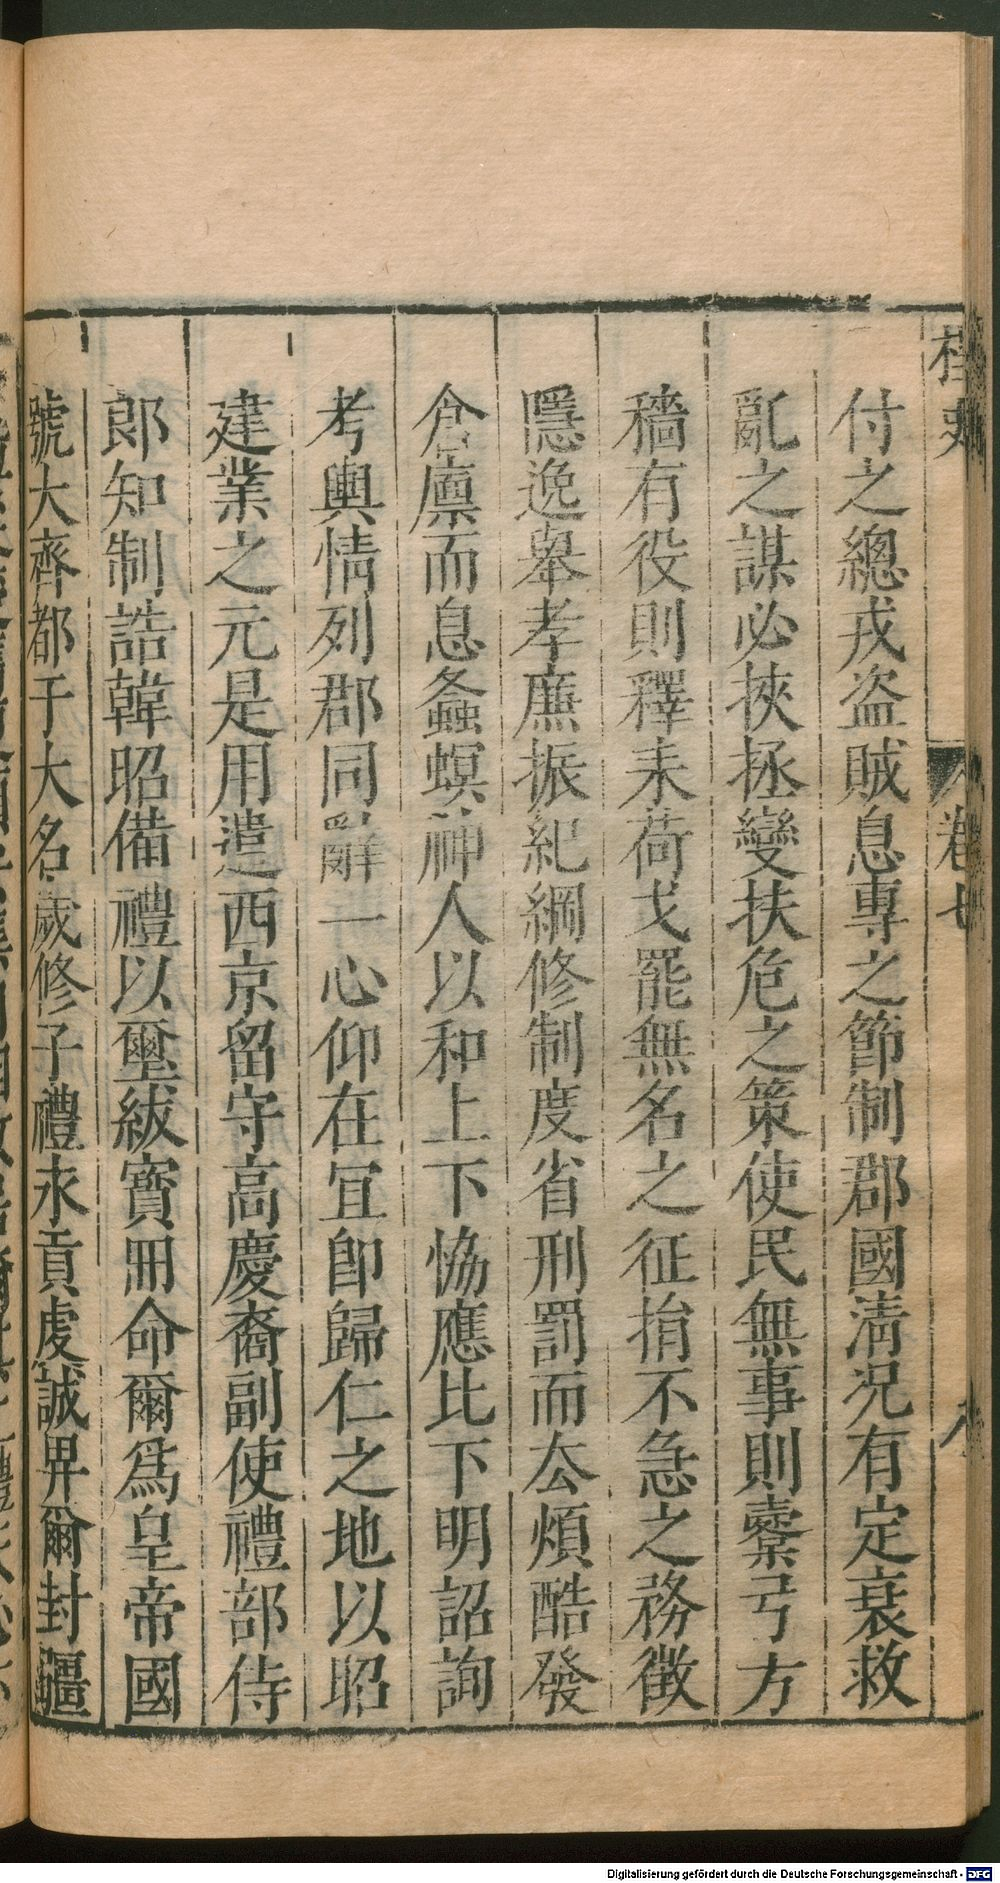 桯史 卷七 八
付之總戎盜賊息專之節制郡國淸況有定衰救
亂之謀必挾拯變扶危之策使民無事則櫜弓方
穡有役則釋耒荷戈罷無名之征捐不急之務徵
隱逸舉孝廉振紀綱修制度省刑罰而厺煩酷發
倉廩而息螽螟神人以和上下恊應比下明詔詢
考輿情列郡同辭一心仰在宜卽歸仁之地以昭
建業之元是用遣西京留守高慶裔副使禮部侍
郎知制誥韓昭備禮以璽紱寶冊命爾爲皇帝國
號大齊都于大名歲修子禮永貢虔誠畀爾封疆
Digitalisierung gefördert durch die Deutsche Forschungsgemeinschaft - DFG